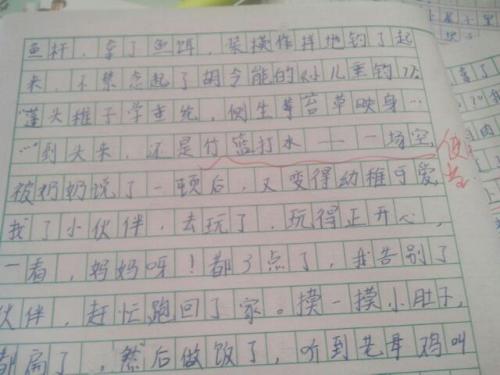 鱼杆，拿了鱼饵，装模作样地钓了起
来，不禁念起了胡令能的《小儿垂钓》
"蓬头稚子学垂纶，侧生莓苔草映身…
…"到头来，还是竹蓝打水——一场空
被奶奶说了一顿后，又变得幼稚可爱
找了小伙伴，去玩了，玩得正开心，
一看，妈妈呀！都3点了，我告别了
伙伴，赶忙跑回了家。摸一摸小肚子，
都扁了，然后做饭了，听到老母鸡叫